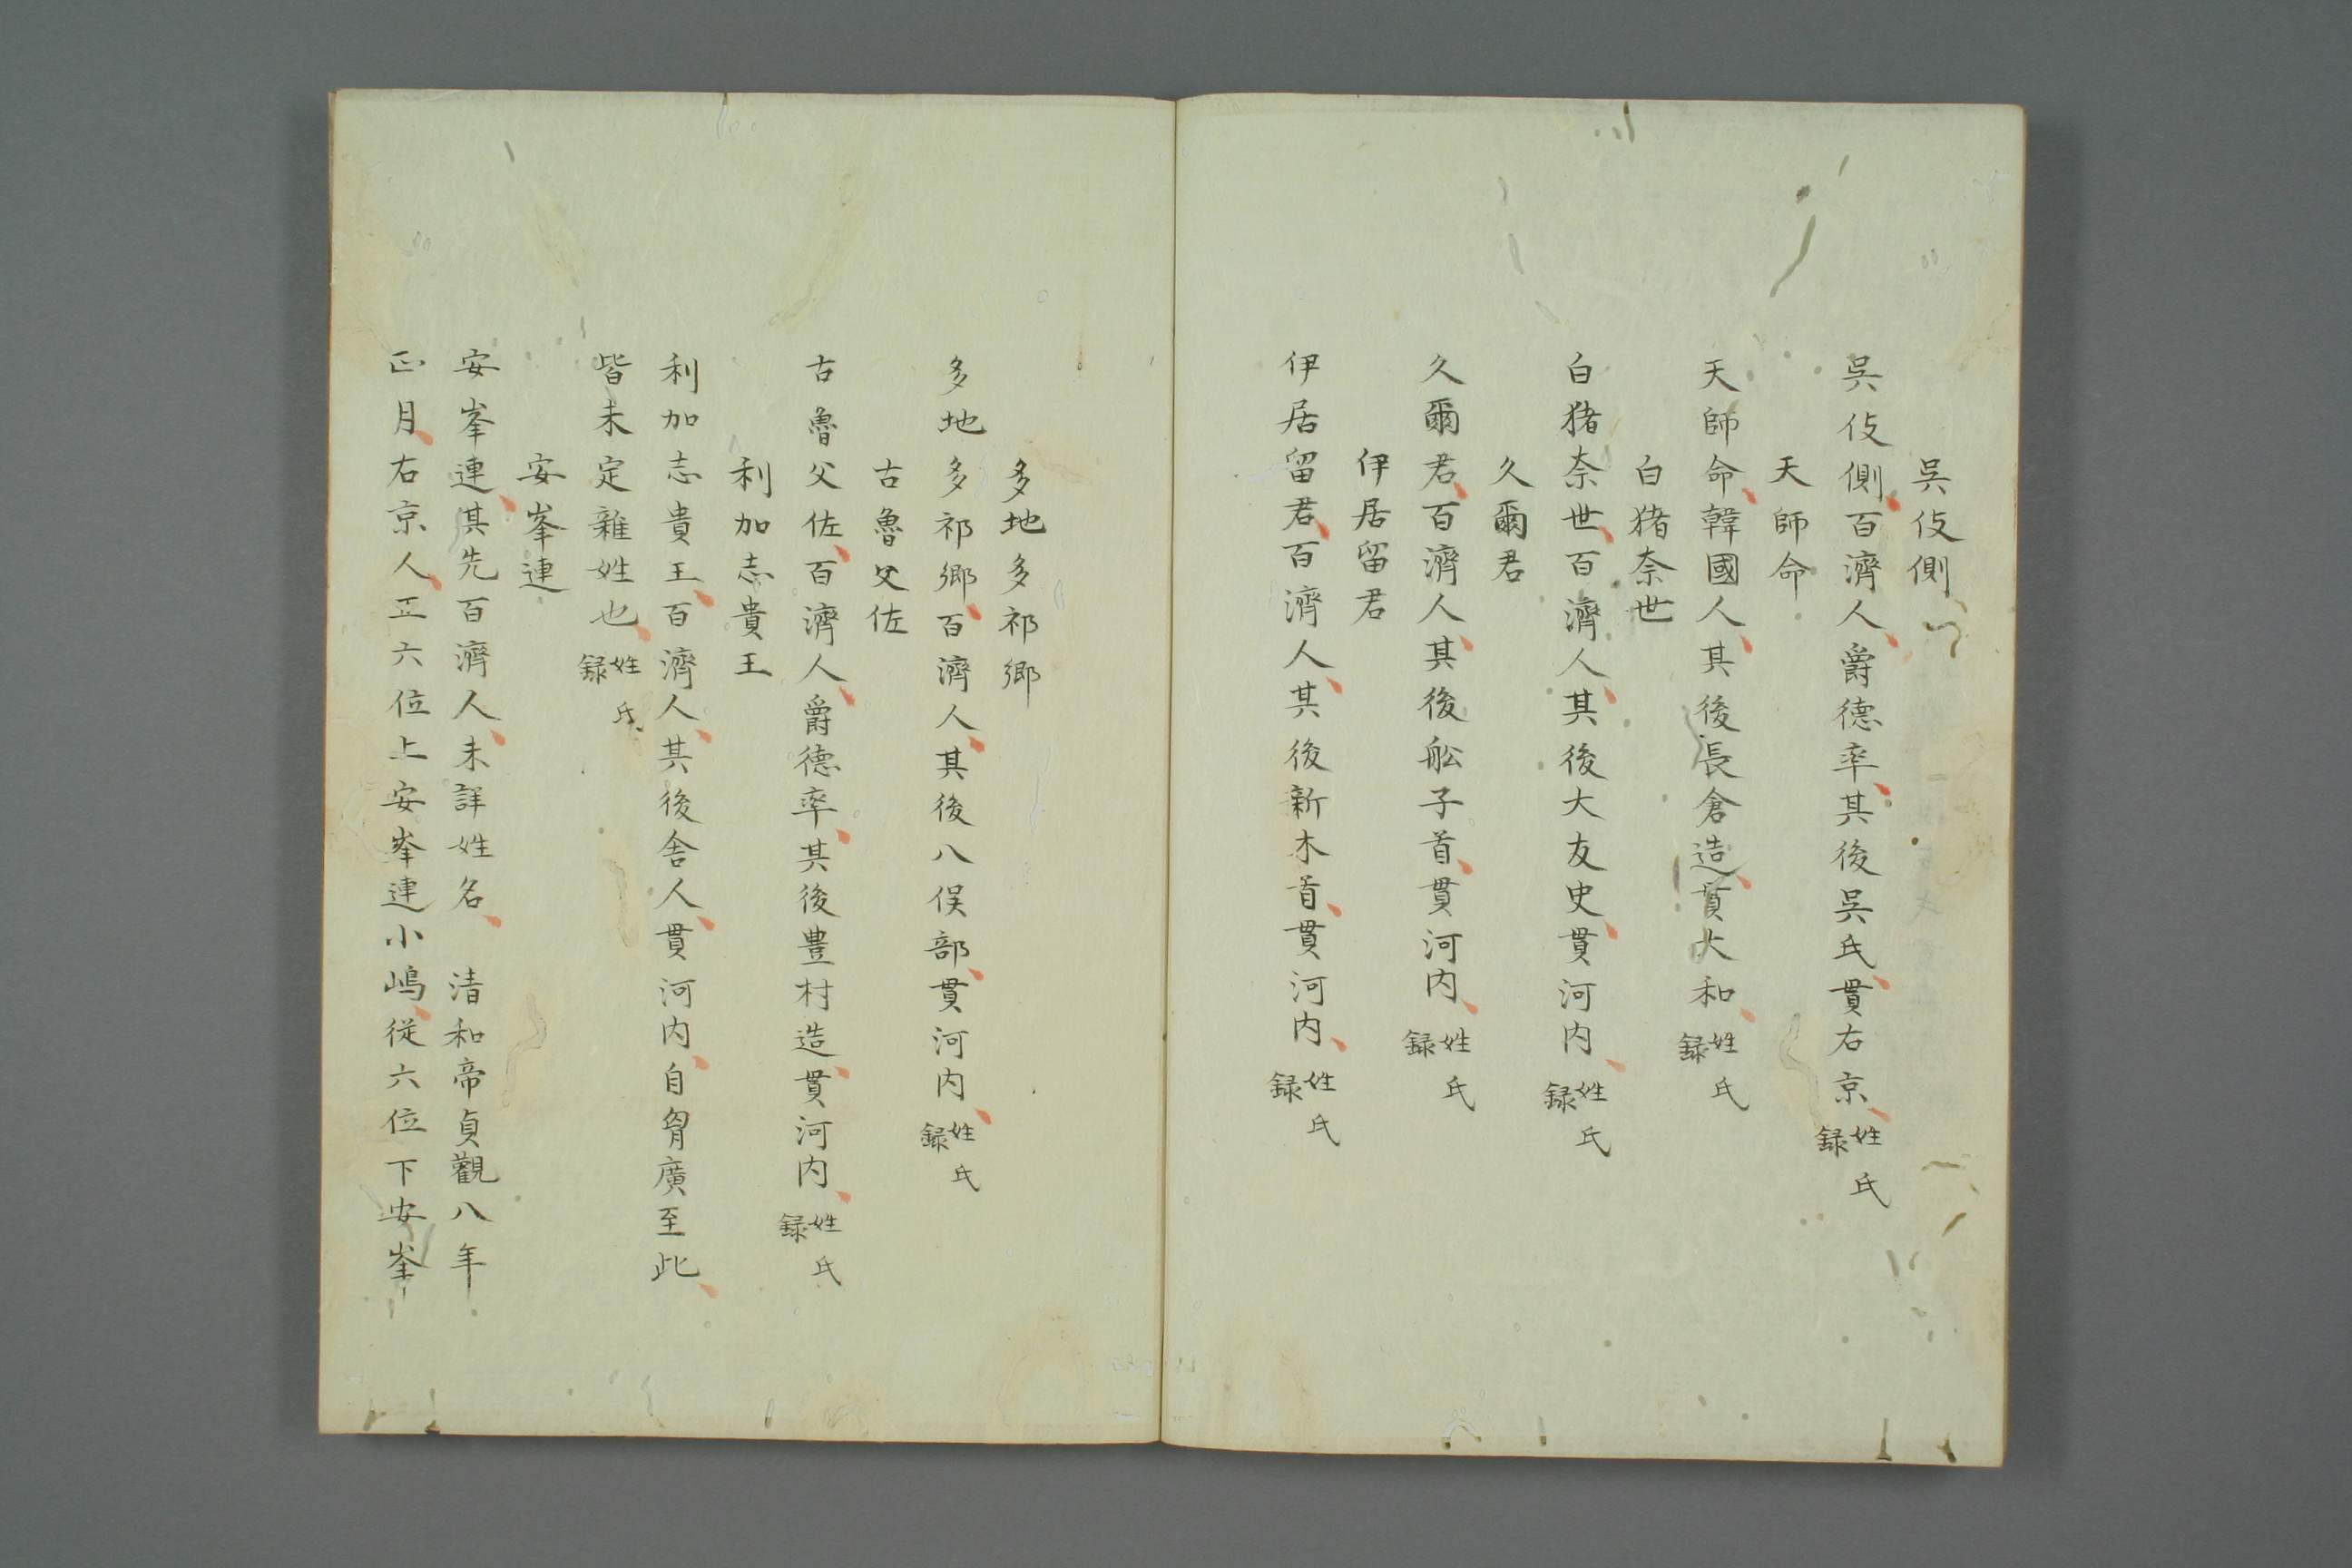 呉伎側
呉伎側百濟人爵德率其後呉氏貫右京姓氏録
天師命
天師命韓國人其後長倉造貫大和姓氏録
白猪奈世
白猪奈世百濟人其後大友史貫河内姓氏録
久爾君
久爾君百濟人其後舩子首貫河内姓氏録
伊居留君
伊居留君百濟人其後新木首貫河内姓氏録
多地多祁鄉
多地多祁鄉百濟人其後八俣部貫河内姓氏録
古魯父佐
古魯父佐百濟人爵德率其後豊村造貫河内姓氏録
利加志貴王
利加志貴王百濟人其後舎人貫河内自胷廣至此
皆未定雜姓也姓氏録
安峯連
安峯連其先百濟人未詳姓名 清和帝貞觀八年
正月右京人正六位上安峯連小嶋從六位下安峯